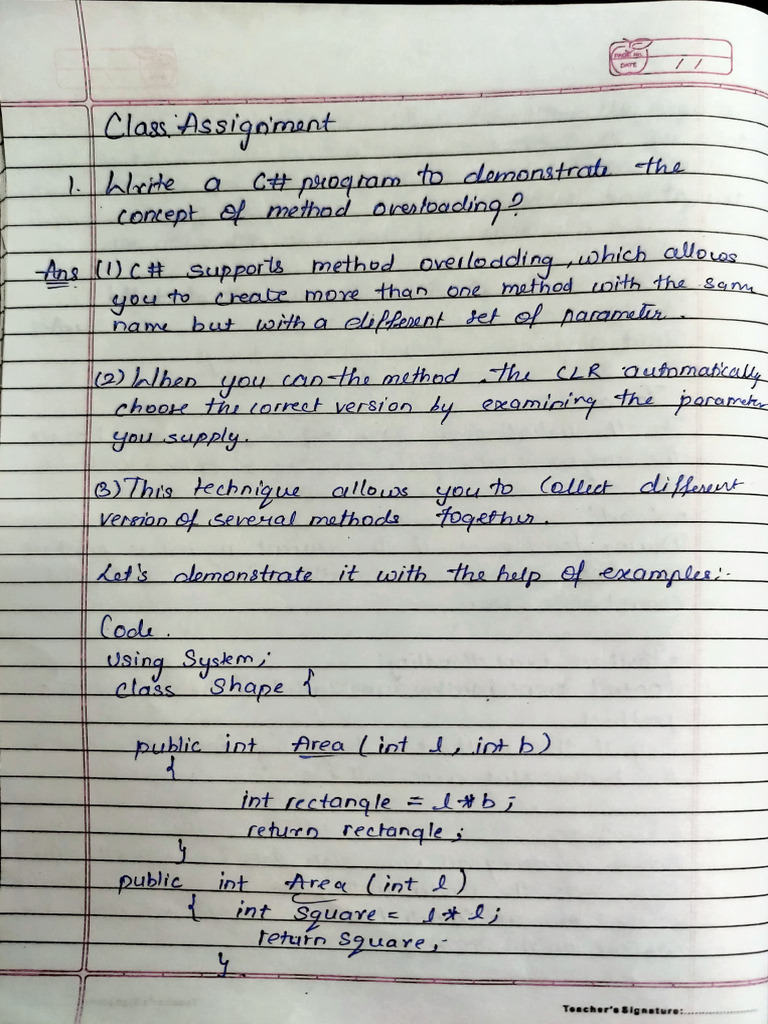 PAGE NO.
DATE / /
Class Assignment
1. Write a C# program to demonstrate the
concept of method overloading?
Ans (1) C# supports method overlodding, which allows
you to create more than one method with the same
name but with a different set of parameter.
(2) When you can the method, the CLR automatically
choose the correct version by examining the parameter
you supply.
(3) This technique allows you to Collect different
version of several methods together.
Let's demonstrate it with the help of examples:-
Code.
using System;
class Shape {
public int Area (int l, int b)
{
int rectangle = l*b;
return rectangle;
}
public int Area (int l)
{ int Square = l*l;
return Square;
}
Teacher's Signature: